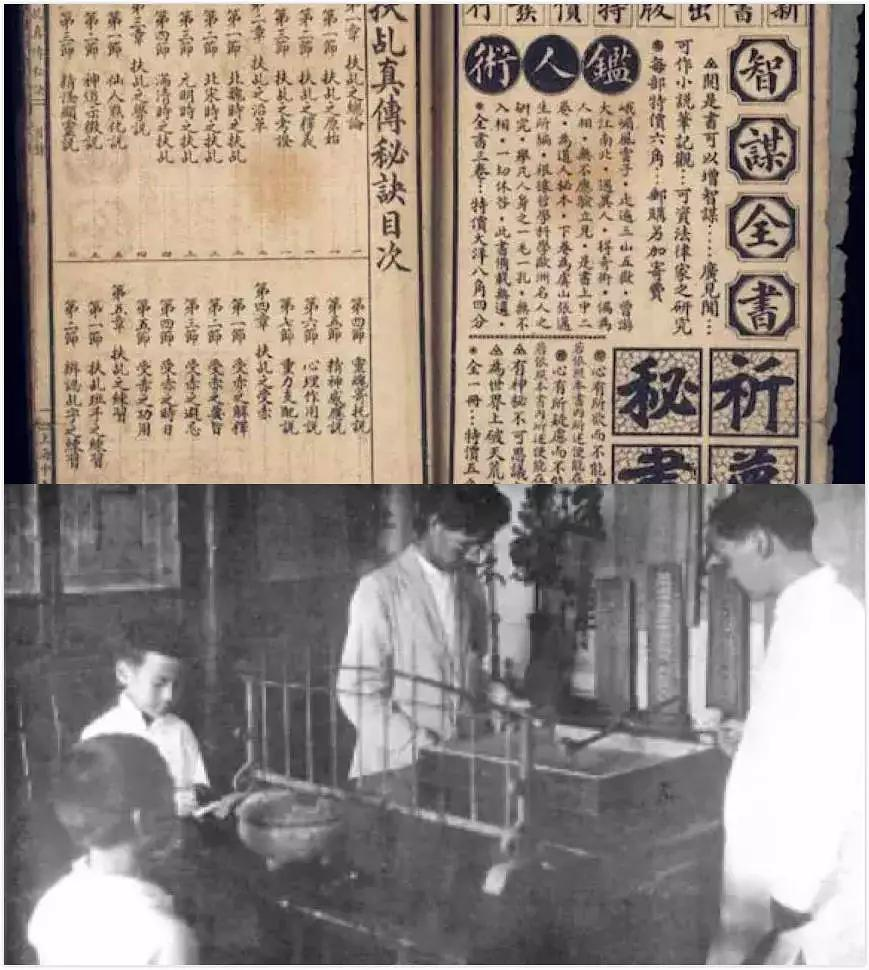 新書出版特價發行
智謀全書
▲閱是書可以增智謀……廣見聞…
可作小說筆記觀…可資法律家之研究
●每部特價六角…郵購另加寄費
鑑人術
峨嵋風雲子・走遍三山五嶽・曾游
大江南北・遇異人・得奇術・偶為
人相・無不應驗立見・是書上中二
卷・為道人秘本・下卷為虞山張遁
生所編・根據哲學科學歐洲名人之
研究・舉凡人身之一毛一孔・無不
入相・一切休咎・此書備載無遺・
●全書三卷…特價大洋八角四分
祈夢
秘書
●心有所欲而不能
若依照本書內所述便能在
●心有所疑慮而不能
若依照本書內所述便能在
▲有神秘不可思議
▲為世界上破天荒
●全一冊…特價五
扶乩真傳秘訣目次
第一章 扶乩之總論
第一節 扶乩之原始
第二節 扶乩之釋義
第三節 扶乩之考證
第二章 扶乩之沿革
第一節 北魏時之扶乩
第二節 北宋時之扶乩
第三節 元明時之扶乩
第四節 滿清時之扶乩
第三章 扶乩之學說
第一節 仙人戲化說
第二節 神道示微說
第三節 精憑顯靈說
第四節 靈魂寄托說
第五節 精神感應說
第六節 心理作用說
第七節 重力支配說
第四章 扶乩之受赤
第一節 受赤之解釋
第二節 受赤之要旨
第三節 受赤之避忌
第四節 受赤之時日
第五節 受赤之功用
第五章 扶乩之練習
第一節 扶乩班斗之練習
第二節 辨認乩字之練習
上海中